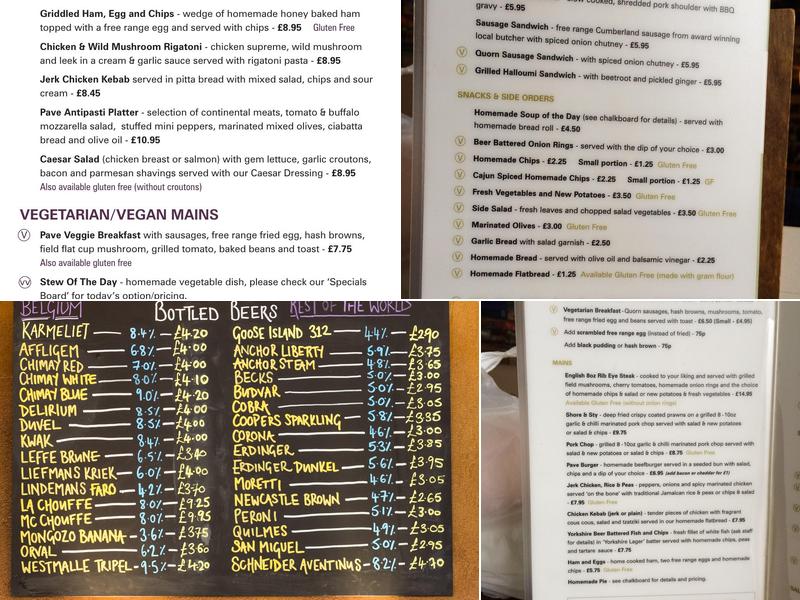 Griddled Ham, Egg and Chips - wedge of homemade honey baked ham
topped with a free range egg and served with chips - £8.95 Gluten Free
Chicken & Wild Mushroom Rigatoni - chicken supreme, wild mushroom
and leek in a cream & garlic sauce served with rigatoni pasta - £8.95
Jerk Chicken Kebab served in pitta bread with mixed salad, chips and sour
cream - £8.45
Pave Antipasti Platter - selection of continental meats, tomato & buffalo
mozzarella salad, stuffed mini peppers, marinated mixed olives, ciabatta
bread and olive oil - £10.95
Caesar Salad (chicken breast or salmon) with gem lettuce, garlic croutons,
bacon and parmesan shavings served with our Caesar Dressing - £8.95
Also available gluten free (without croutons)
VEGETARIAN/VEGAN MAINS
V Pave Veggie Breakfast with sausages, free range fried egg, hash browns,
field flat cup mushroom, grilled tomato, baked beans and toast - £7.75
Also available gluten free
VV Stew Of The Day - homemade vegetable dish, please check our 'Specials
Board' for today's option/pricing.
cooked, shredded pork shoulder with BBQ
gravy - £5.95
Sausage Sandwich - free range Cumberland sausage from award winning
local butcher with spiced onion chutney - £5.95
V Quorn Sausage Sandwich - with spiced onion chutney - £5.95
V Grilled Halloumi Sandwich - with beetroot and pickled ginger - £5.95
SNACKS & SIDE ORDERS
Homemade Soup of the Day (see chalkboard for details) - served with
homemade bread roll - £4.50
V Beer Battered Onion Rings - served with the dip of your choice - £3.00
V Homemade Chips - £2.25 Small portion - £1.25 Gluten Free
V Cajun Spiced Homemade Chips - £2.25 Small portion - £1.25 GF
V Fresh Vegetables and New Potatoes - £3.50 Gluten Free
V Side Salad - fresh leaves and chopped salad vegetables - £3.50 Gluten Free
V Marinated Olives - £3.00 Gluten Free
V Garlic Bread with salad garnish - £2.50
V Homemade Bread - served with olive oil and balsamic vinegar - £2.25
V Homemade Flatbread - £1.25 Available Gluten Free (made with gram flour)
BELGIUM BOTTLED BEERS REST OF THE WORLD
KARMELIET 8.4% £4.20
AFFLIGEM 6.8% £4.00
CHIMAY RED 7.0% £4.00
CHIMAY WHITE 8.0% £4.10
CHIMAY BLUE 9.0% £4.20
DELIRIUM 8.5% £4.00
DUVEL 8.5% £4.00
KWAK 8.4% £4.00
LEFFE BRUNE 6.5% £3.40
LIEFMANS KRIEK 6.0% £4.00
LINDEMANS FARO 4.2% £3.70
LA CHOUFFE 8.0% £9.25
MC CHOUFFE 8.0% £9.95
MONGOZO BANANA 3.6% £3.75
ORVAL 6.2% £3.60
WESTMALLE TRIPEL 9.5% £4.20
GOOSE ISLAND 312 4.4% £2.90
ANCHOR LIBERTY 5.9% £3.75
ANCHOR STEAM 4.8% £3.65
BECKS 5.0% £3.00
BUDVAR 5.0% £2.95
COBRA 5.0% £3.05
COOPERS SPARKLING 5.8% £3.35
CORONA 4.6% £3.00
ERDINGER 5.3% £3.85
ERDINGER DUNKEL 5.6% £3.95
MORETTI 4.6% £3.05
NEWCASTLE BROWN 4.7% £2.65
PERONI 5.1% £3.00
QUILMES 4.9% £3.05
SAN MIGUEL 5.0% £2.95
SCHNEIDER AVENTINUS 8.2% £4.70
Vegetarian Breakfast - Quorn sausages, hash browns, mushrooms, tomato,
free range fried egg and beans served with toast - £6.50 (Small - £4.95)
V Add scrambled free range egg (instead of fried) - 75p
Add black pudding or hash brown - 75p
MAINS
English 8oz Rib Eye Steak - cooked to your liking and served with grilled
field mushrooms, cherry tomatoes, homemade onion rings and the choice
of homemade chips & salad or new potatoes & fresh vegetables - £14.95
Available Gluten Free (without onion rings)
Shore & Sty - deep fried crispy coated prawns on a grilled 8 - 10oz
garlic & chilli marinated pork chop served with salad & new potatoes
or salad & chips - £9.75
Pork Chop - grilled 8 - 10oz garlic & chilli marinated pork chop served with
salad & new potatoes or salad & chips - £8.75 Gluten Free
Pave Burger - homemade beefburger served in a seeded bun with salad,
chips and a dip of your choice - £6.95 (add bacon or cheddar for £1)
Jerk Chicken, Rice & Peas - peppers, onions and spicy marinated chicken
served 'on the bone' with traditional Jamaican rice & peas or chips & salad
- £7.95 Gluten Free
Chicken Kebab (jerk or plain) - tender pieces of chicken with fragrant
cous cous, salad and tzatziki served in our homemade flatbread - £7.95
Yorkshire Beer Battered Fish and Chips - fresh fillet of white fish (ask staff
for details) in 'Yorkshire Lager' batter served with homemade chips, peas
and tartare sauce - £7.75
Ham and Eggs - home cooked ham, two free range eggs and homemade
chips - £5.75 Gluten Free
Homemade Pie - see chalkboard for details and pricing.